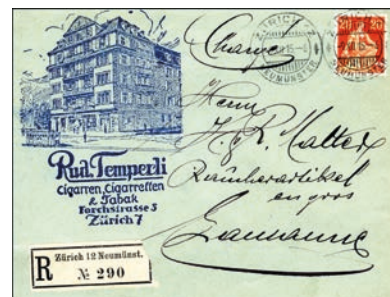 Rud. Temperli
Cigarren, Cigarretten
& Tabak
Forchstrasse 5
Zürich 7
R Zürich 12 Neumünst.
№ 290
Charge
ZÜRICH
NEUMÜNSTER
20 20
Herrn
H. R. Matter
Raucherartikel
en gros
Lausanne